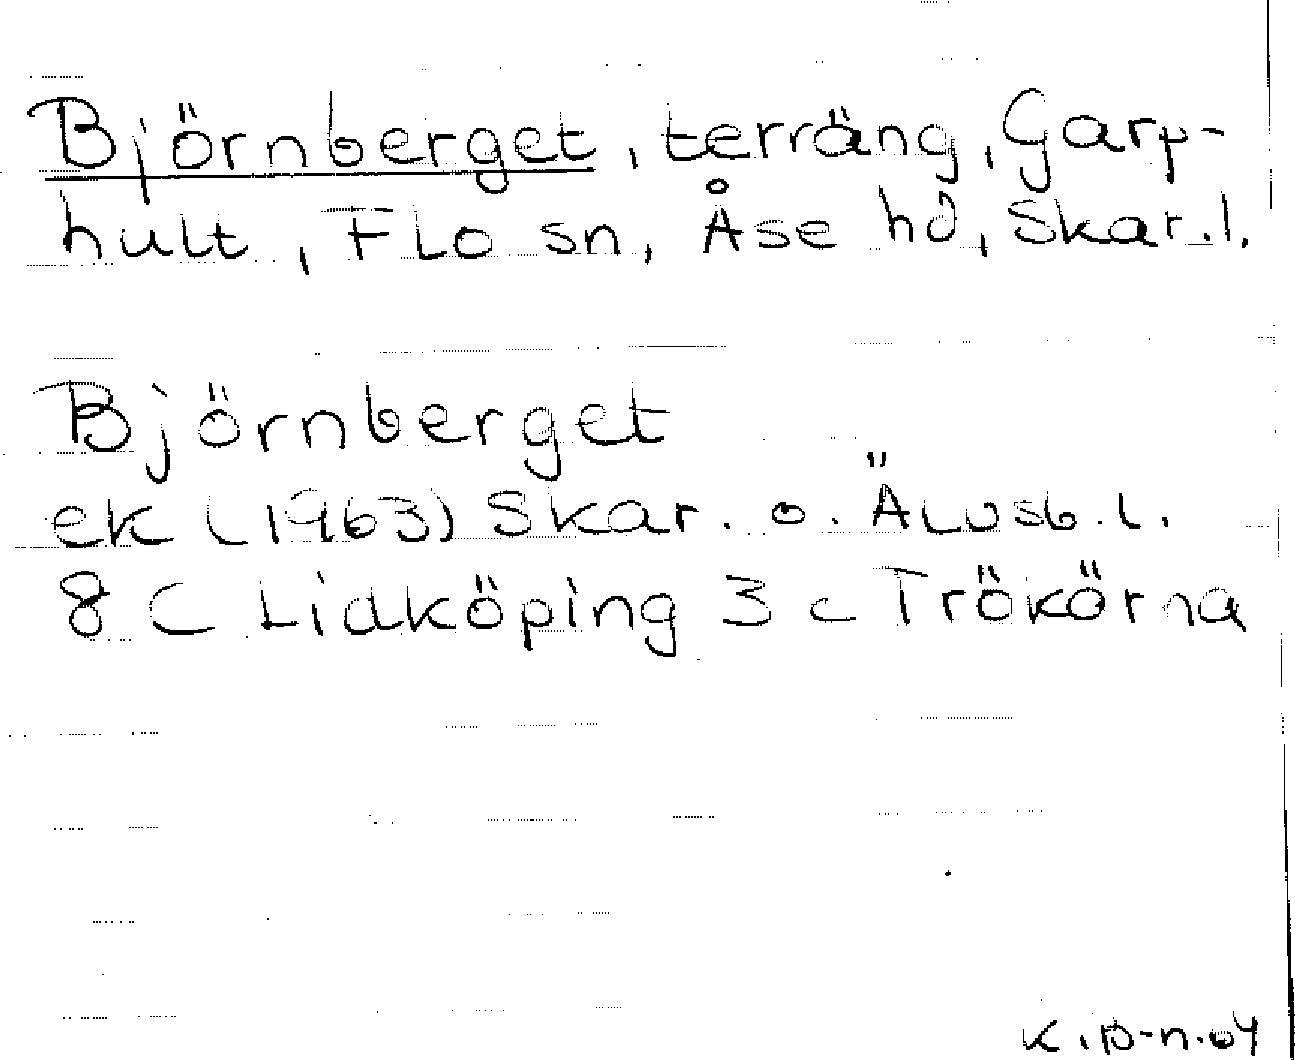 Björnberget, terräng, Garp-
hult, Flo sn, Åse hd, Skar.l.
Björnberget
ek (1963) Skar. o. Älvsb.l.
8 C Lidköping 3 c Trökörna
K.p-n.04